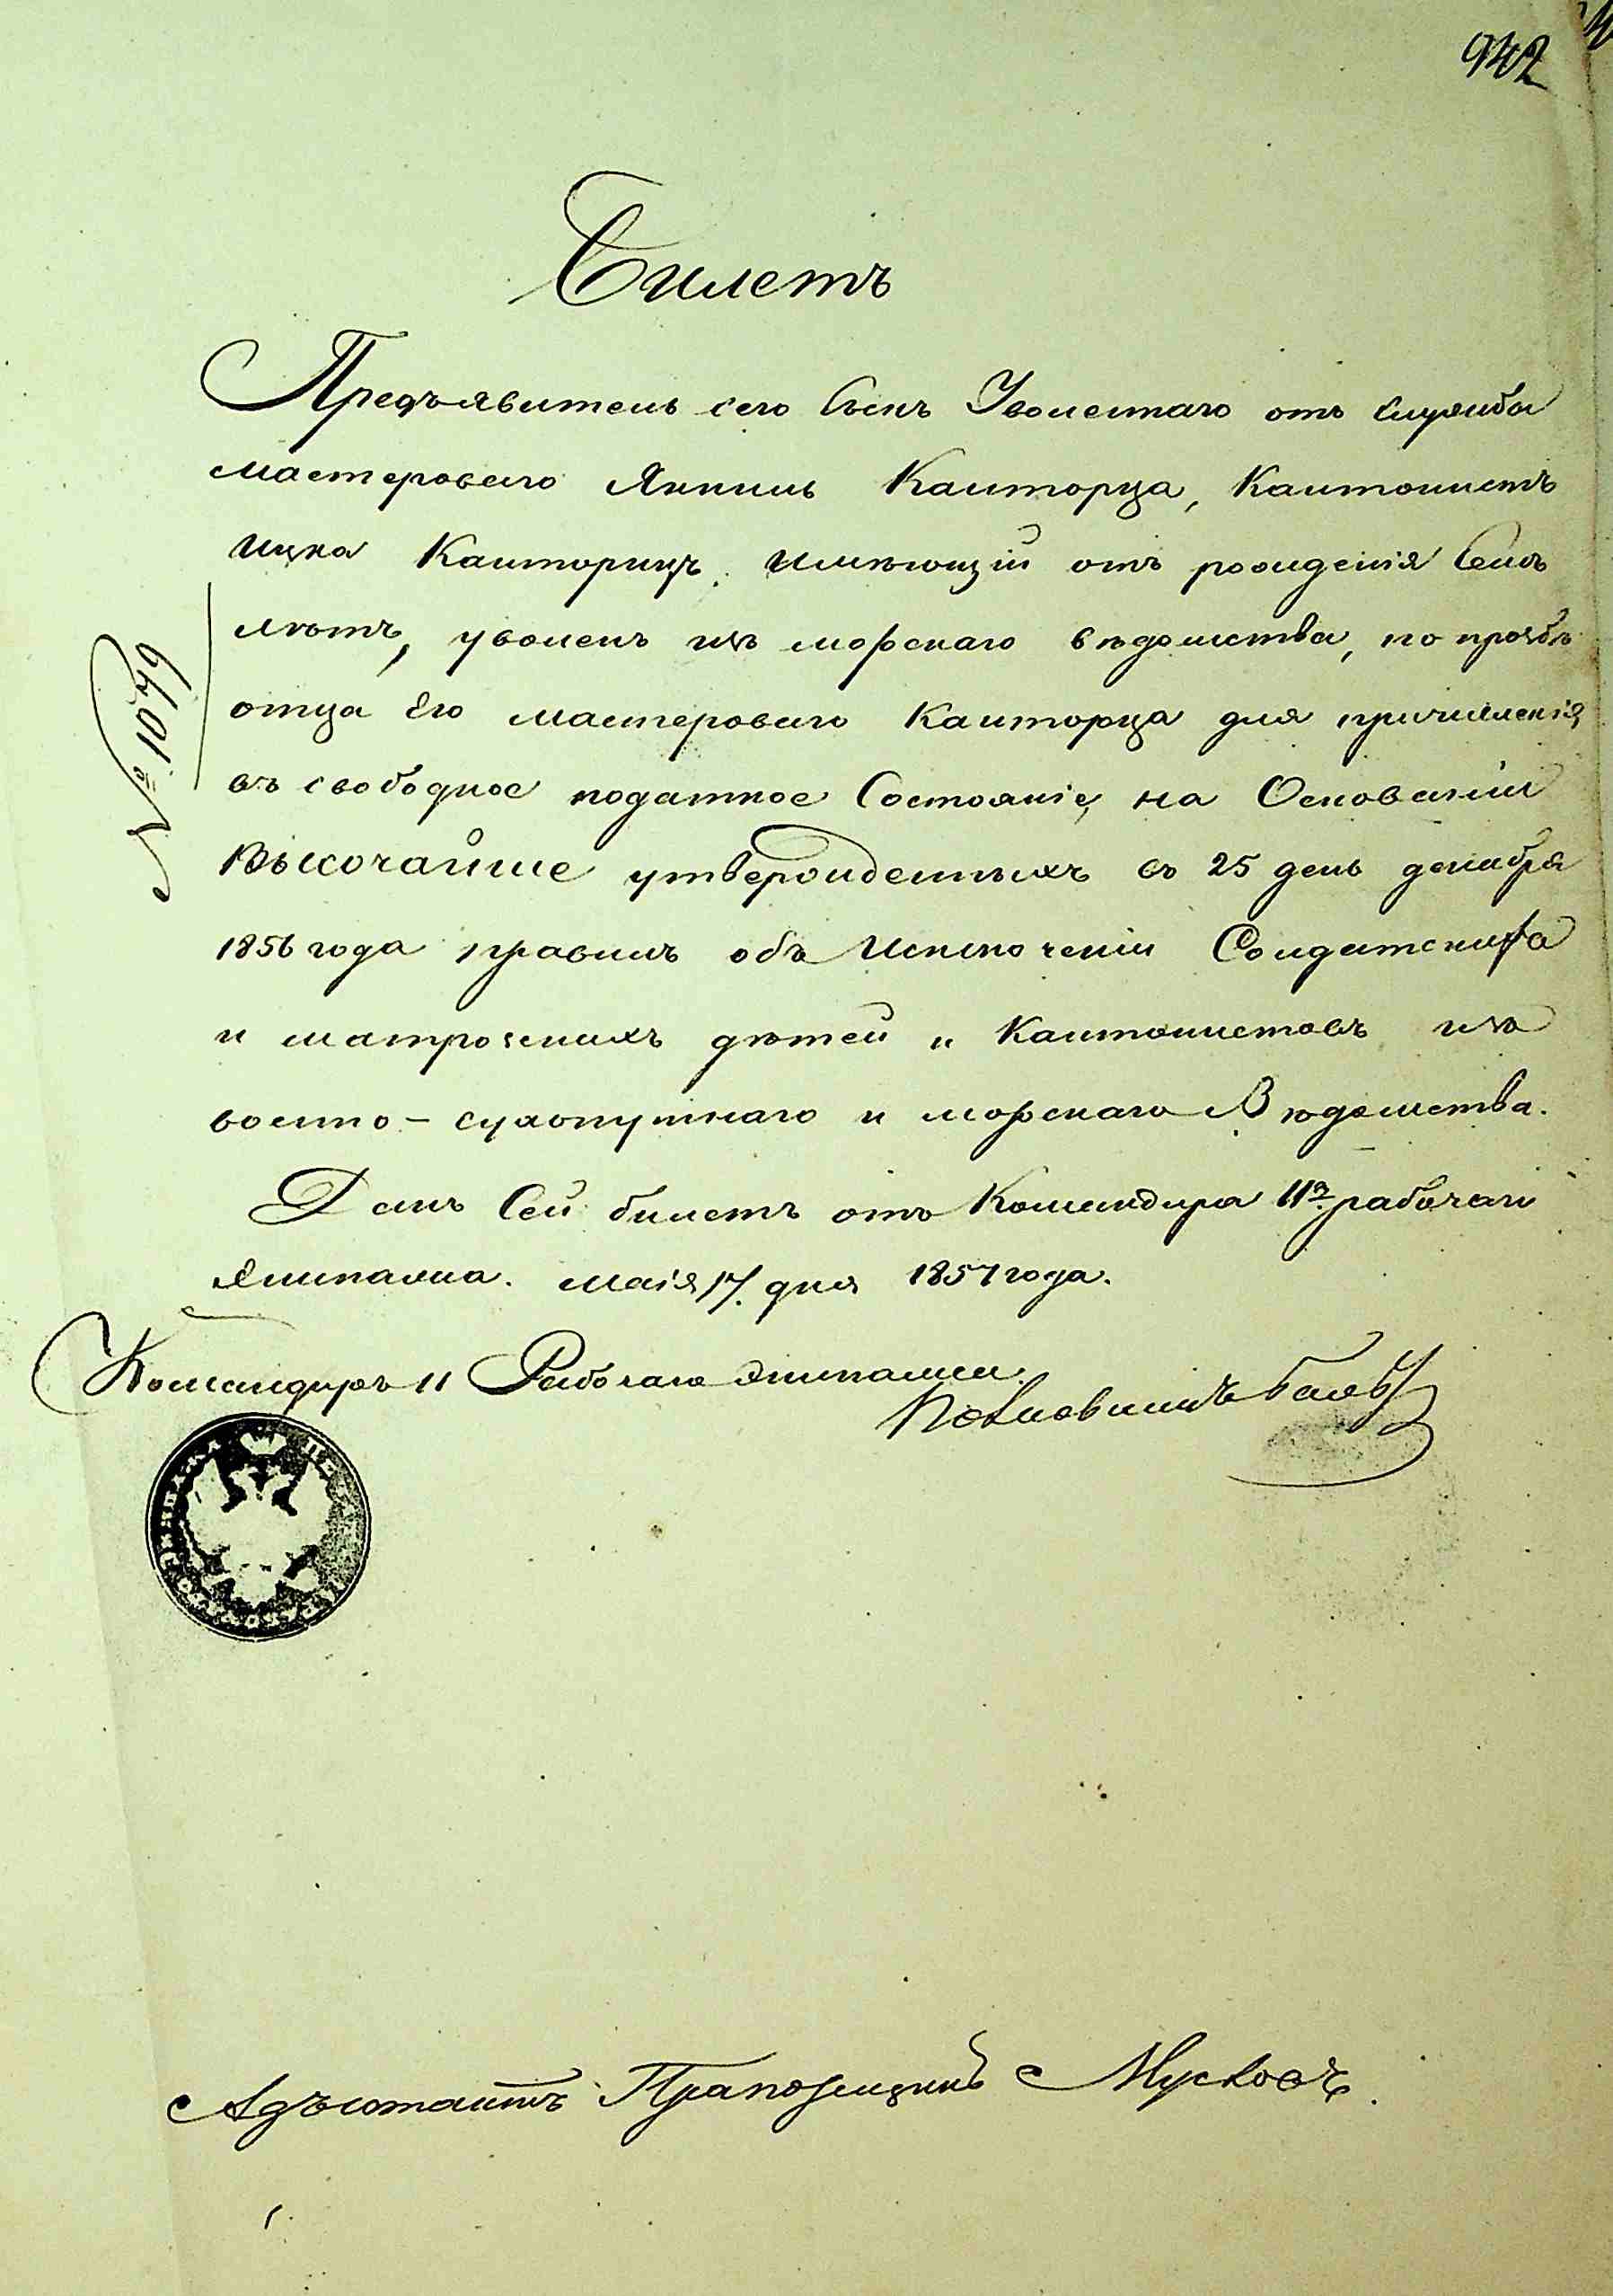 942
Билетъ
Предъявитель сего Сынъ Уволеннаго отъ службы
мастероваго Янкиль Канторца, Кантонистъ
Ицка Канторицъ, имѣющій отъ рожденія Семь
лѣтъ, уволенъ изъ морскаго вѣдомства, по прозбѣ
отца Его мастероваго Канторца для причисленія
въ свободное податное Состояніе, на Основаніи
Высочайше утвержденныхъ въ 25 день декабря
1856 года правилъ объ Исключеніи Солдатскихъ
и матроскихъ дѣтей и Кантонистовъ изъ
военно-сухопутнаго и морскаго Вѣдомства.
Данъ Сей билетъ отъ Командира 11го рабочаго
Экипажа. маія 17. дня 1857 года.
№ 1079
Командиръ 11 Рабочаго Экипажа
Полковникъ
Адъютантъ Прапорщикъ Мусковъ.